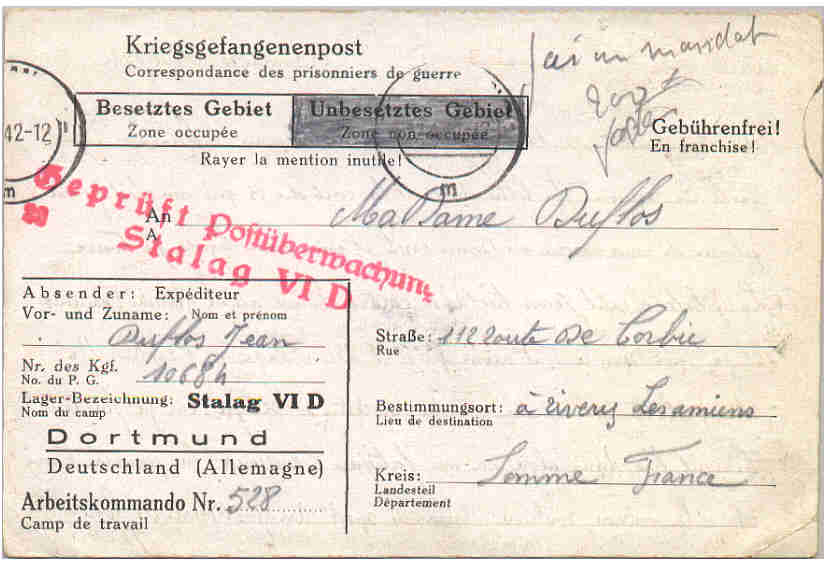 Kriegsgefangenenpost
Correspondance des prisonniers de guerre
j'ai un mandat
Besetztes Gebiet
Zone occupée
Unbesetztes Gebiet
Zone non occupée
42-12
Gebührenfrei!
En franchise!
Rayer la mention inutile!
m
m
Geprüft Postüberwachung
Stalag VI D
An
A
Madame Duflos
Absender: Expéditeur
Vor- und Zuname: Nom et prénom
Duflos Jean
Nr. des Kgf. 10684
No. du P. G.
Lager-Bezeichnung: Stalag VI D
Nom du camp
Dortmund
Deutschland (Allemagne)
Arbeitskommando Nr. 528
Camp de travail
Straße: 112 route de Corbie
Rue
Bestimmungsort: à rivery Lesamiens
Lieu de destination
Kreis: Somme France
Landesteil
Département